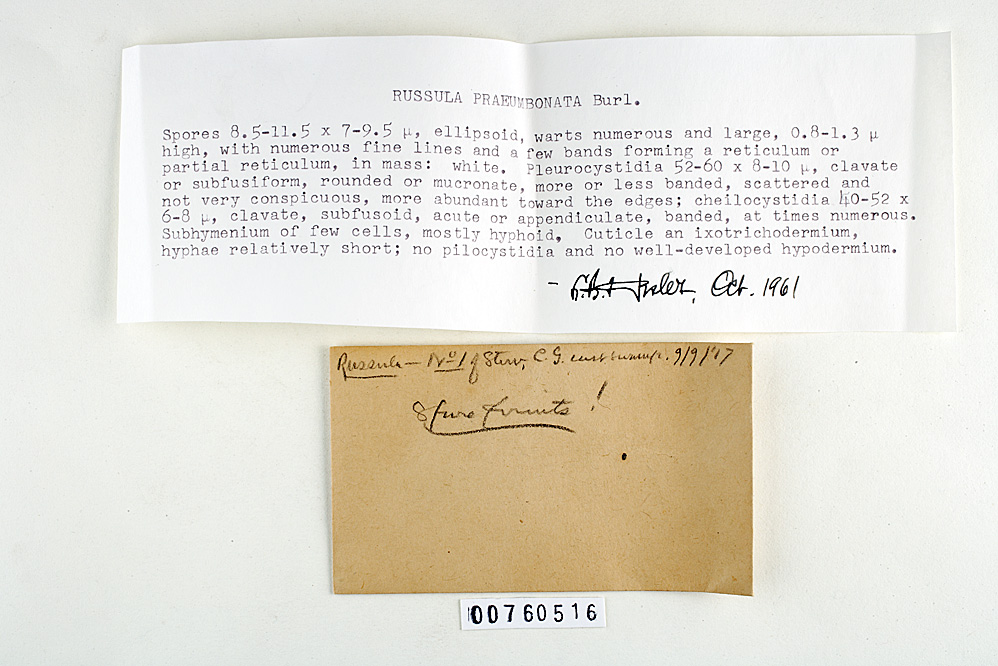 RUSSULA PRAEUMBONATA Burl.
Spores 8.5-11.5 x 7-9.5 µ, ellipsoid, warts numerous and large, 0.8-1.3 µ
high, with numerous fine lines and a few bands forming a reticulum or
partial reticulum, in mass: white. Pleurocystidia 52-60 x 8-10 µ, clavate
or subfusiform, rounded or mucronate, more or less banded, scattered and
not very conspicuous, more abundant toward the edges; cheilocystidia 40-52 x
6-8 µ, clavate, subfusoid, acute or appendiculate, banded, at times numerous.
Subhymenium of few cells, mostly hyphoid. Cuticle an ixotrichodermium,
hyphae relatively short; no pilocystidia and no well-developed hypodermium.
- Oct. 1961
Russula - No 1 of C. G. 9/9/17
Spore prints!
00760516